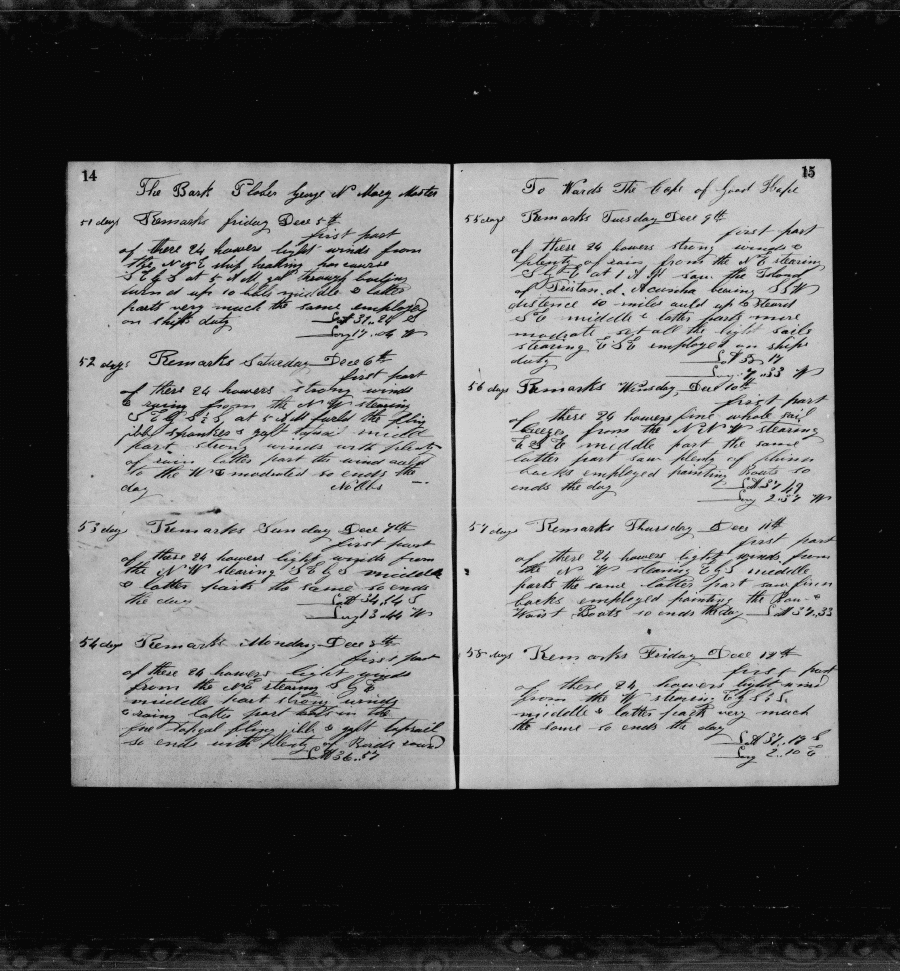 14
The Bark Plover George N Macy Master
51 days Remarks friday Dec 5th
first part
of these 24 howers light winds from
the N & E ship heading her course
S E & S at 5 A M got through boiling
turned up 10 bbls middle & latter
parts very much the same employed
on ships duty Lat 31..24 S
Long 17..04 W
52 days Remarks Saturday Dec 6th
first part
of these 24 howers strong winds
& rainy from the N W stearing
S E by S at 5 A M furled the fling
jibb spanker & gaft topsail middle
part strong winds with plenty
of rain latter part the wind
to the W & modrated so ends the
day No Obs
53 days Remarks Sunday Dec 7th
first part
of these 24 howers light winds from
the N W stearing S E by S middle
& latter parts the same so ends
the day Lat 34..14 S
Long 13..44 W
54 days Remarks Monday Dec 8th
first part
of these 24 howers light winds
from the N E stearing S by E
middle part strong winds
& rainy latter part in the
fore Topgal fling jibb & gaft topsail
so ends with plenty of Birds round
Lat 36..57
15
To Wards The Cape of Good Hope
55 days Remarks Tuesday Dec 9th
first part
of these 24 howers strong winds &
plenty of rain from the N E stearing
S by E at 1 A M saw the Island
of Tristan. d. Acunha bearing SSW
distence 10 miles auld up & steard
S E middle & latter parts more
modrate set all the light sails
stearing E S E employed on ships
duty Lat 37 17
Long 7..33 W
56 days Remarks Wensday Dec 10th
first part
of these 24 howers fine whole sail
breezes from the N N W stearing
E S E middle part the same
latter part saw plenty of phinn
backs employed painting Boats so
ends the day Lat 37 49
Long 2..57 W
57 days Remarks Thursday Dec 11th
first part
of these 24 howers light winds from
the N W stearing E by S middle
parts the same latter part saw finn
backs employed painting the
Waist Boats so ends the day Lat 37..33
58 days Remarks Friday Dec 12th
first part
of these 24 howers light wind
from the W stearing E by S 1/2 S.
middle & latter parts very much
the same so ends the day
Lat 37..17 S
Long 2..10 E